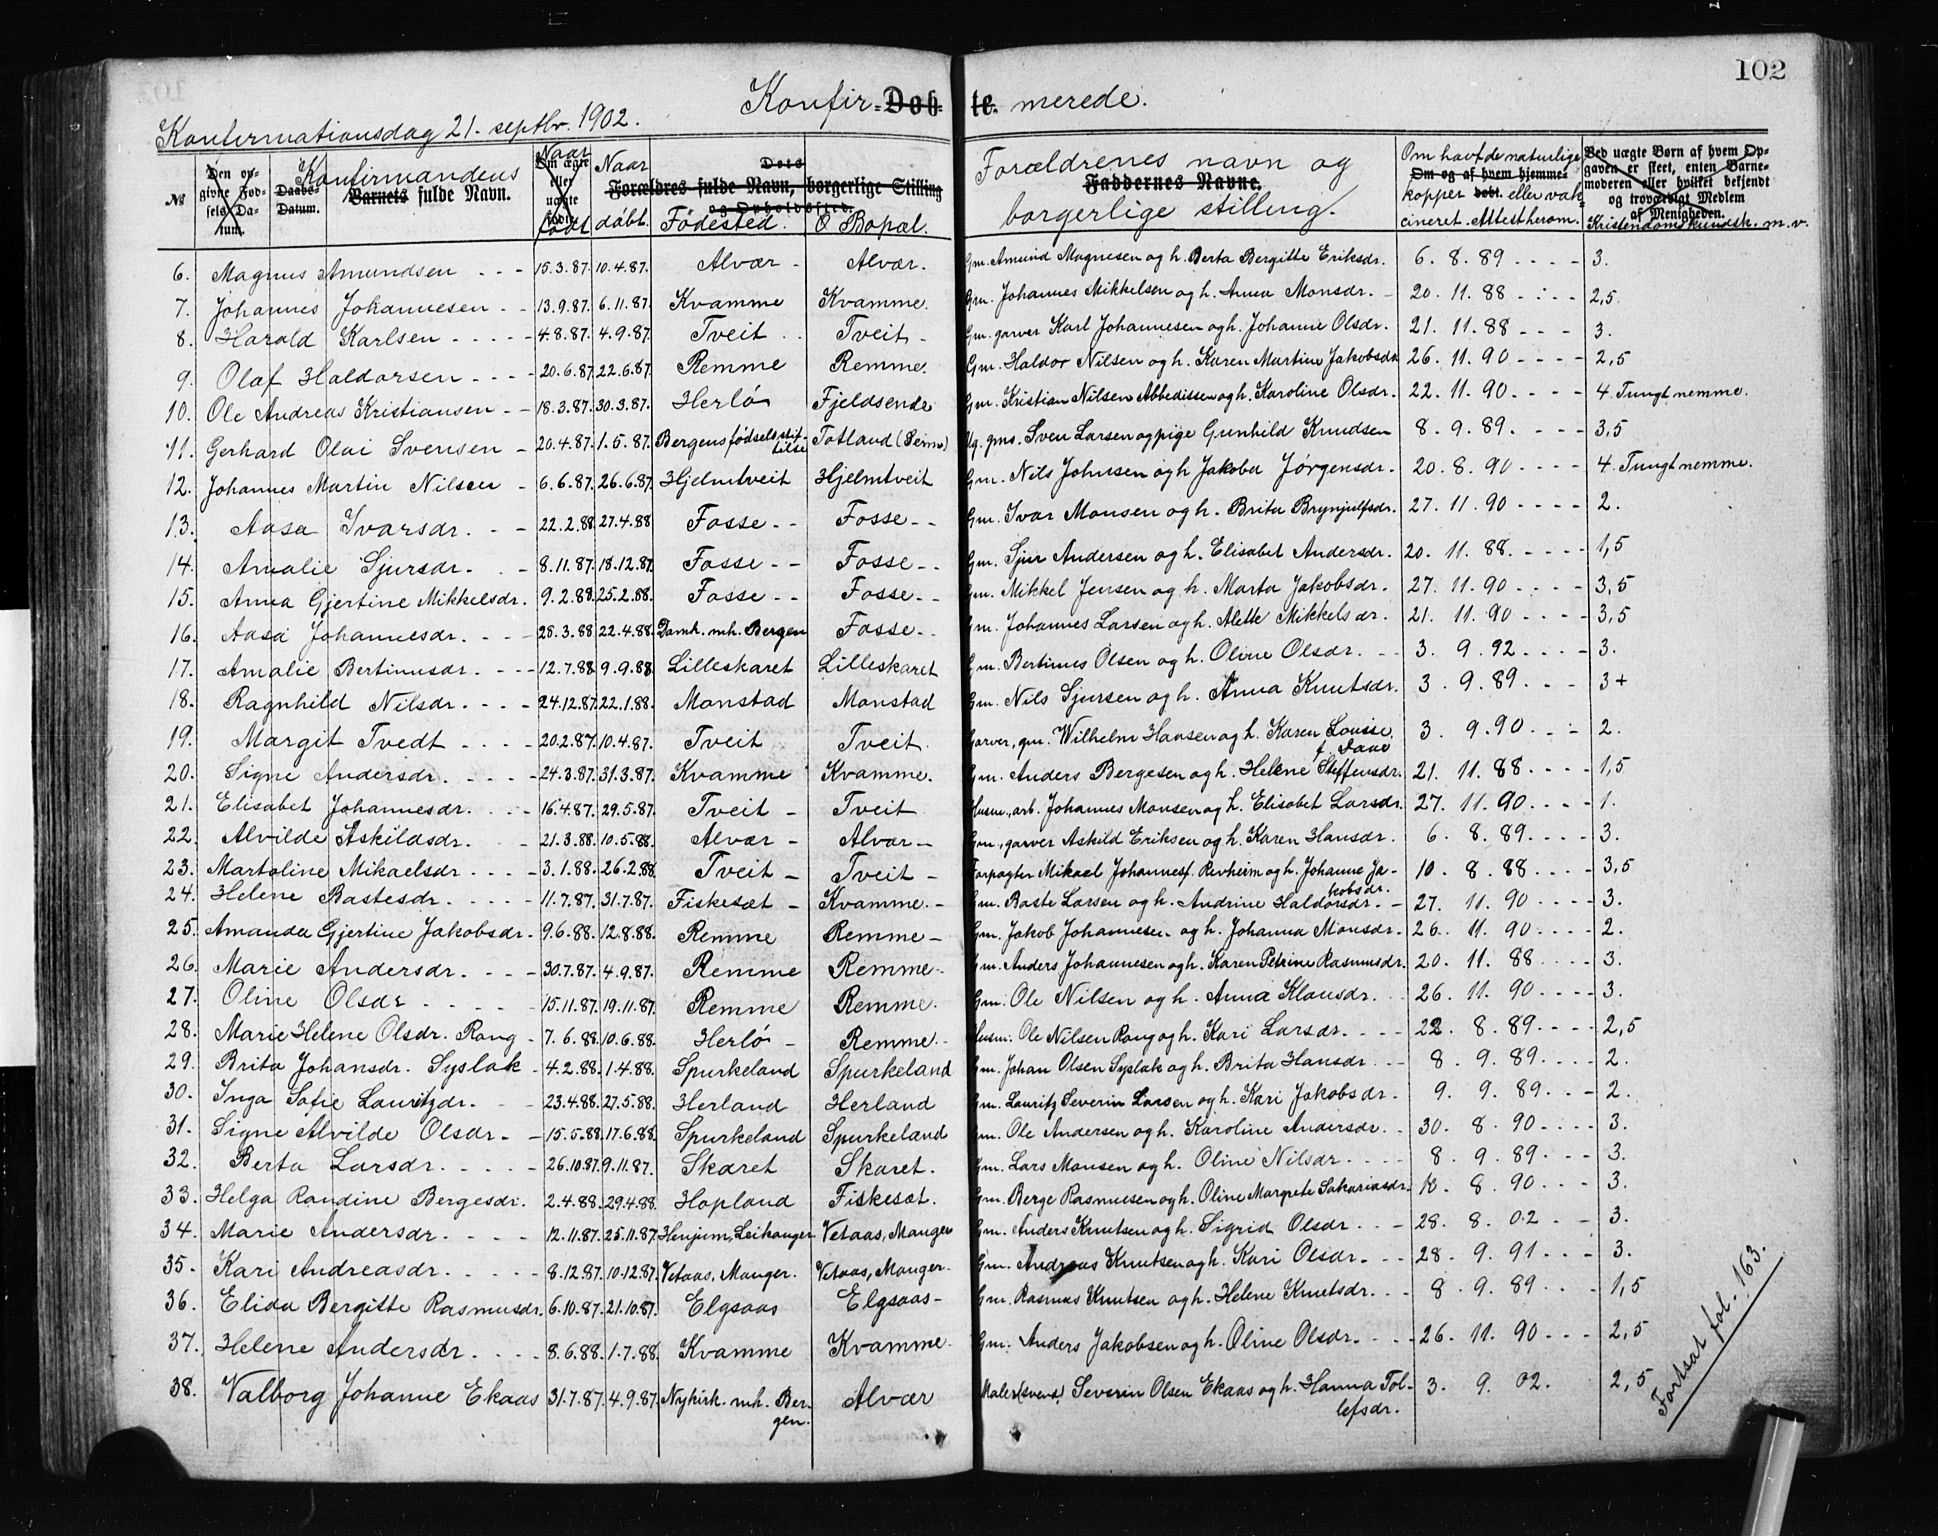 102
Konfir- Døb- te. merede.
Konfirmationsdag 21. septbr. 1902.
№ | Den opgivne Fødsels-Datum. | Daabs-Datum. | Konfirmandens Barnets fulde Navn. | Naar Om ægte eller uægte født. født | Naar døbt. | Dets Forældres fulde Navn, borgerlige Stilling og Opholdssted. Fødested. & Bopæl. | Forældrenes navn og Faddernes Navne. borgerlige stilling. | Om havt de naturlige Om og af hvem hjemme- kopper døbt. eller vak- cineret. Attest herom. | Ved uægte Børn af hvem Opgaven er skeet, enten Barnemoderen eller hvilket bekjendt og troværdigt Medlem af Menigheden. Kristendomskundsk. m. v.
6. Magnus Amundsen - - - 15.3.87. 10.4.87. Alvær - Alvær. Gm. Amund Magnesen og h. Berta Bergitte Eriksdr. 6. 8. 89 - - - - 3.
7. Johannes Johannesen - - 13.9.87. 6.11.87. Kvamme Kvamme. Gm. Johannes Mikkelsen og h. Anna Monsdr. - 20. 11. 88 - - - 2,5.
8. Harald Karlsen - - - - - 4.8.87. 4.9.87. Tveit - - Tveit - Gm. garver Karl Johannesen og h. Johanne Olsdr. 21. 11. 88 - - - 3.
9. Olaf Haldorsen - - - - 20.6.87. 22.6.87. Remme Remme. Gm. Haldor Nilsen og h. Karen Martine Jakobsdr. 26. 11. 90 - - - - 2,5
10. Ole Andreas Kristiansen - - 18.3.87. 30.3.87. Herlø Fjeldsende Gm. Kristian Nilsen Abbedissen og h. Karoline Olsdr. 22. 11. 90. - - - 4. Tungt nemme.
11. Gerhard Olai Svensen - 20.4.87. 1.5.87. Bergens fødselsstiftelse Totland (Seim) Ug. gms. Sven Larsen og pige Gunhild Knudsen 8. 9. 89. - - - 3,5
12. Johannes Martin Nilsen - 6.6.87. 26.6.87. Hjelmtveit Hjelmtveit Gm. Nils Johnsen og h Jakoba Jørgensdr. 20. 8. 90 - - - - 4. Tungt nemme.
13. Aasa Ivarsdr. - - 22.2.88. 27.4.88 Fosse - - Fosse - - Gm. Ivar Monsen og h. Brita Brynjulfsdr. 27. 11. 90 - - - - 2.
14. Amalie Sjursdr. - - 8.11.87. 18.12.87. Fosse - - Fosse - - Gm. Sjur Andersen og h. Elisabet Andersdr. 20. 11. 88. - - - - 1,5
15. Anna Gjertine Mikkelsdr. 9.2.88. 25.2.88. Fosse - - Fosse - - Gm. Mikkel Jensen og h. Marta Jakobsdr. 27. 11. 90 - - - - 3,5
16. Aasa Johannesdr. - - - 28.3.88 22.4.88. Domk. mh. Bergen Fosse - - Gm. Johannes Larsen og h. Alette Mikkelsdr. 21. 11. 90 - - - - 3,5
17. Amalie Bertinusdr. - - - 12.7.88. 9.9.88. Lilleskaret Lilleskaret Gm. Bertinus Olsen og h. Oline Olsdr. - - 3. 9. 92 - - - - 3.
18. Ragnhild Nilsdr. - - - 24.12.87. 22.1.88. Monstad Monstad Gm. Nils Sjursen og h. Anna Knutsdr. 3. 9. 89. - - - 3+
19. Margit Tvedt - - - - 20.2.87. 10.4.87. Tveit Tveit. Garver, gm. Wilhelm Hansen og h. Karen Lovise, f. Daae 3. 9. 90. - - 2.
20. Signe Andersdr. - - - - 24.3.87. 31.3.87. Kvamme Kvamme. Gm. Anders Bergesen og h. Helene Steffensdr. 21. 11. 88 - - - - 1,5
21. Elisabet Johannesdr. - - - 16.4.87. 29.5.87. Tveit - Tveit Husm., arb. Johannes Monsen og h. Elisabet Larsdr. 27. 11. 90. - - - 1.
22. Alvilde Askildsdr. - 21.3.88. 10.5.88. Alvær - Alvær - Gm., garver Askild Eriksen og h. Karen Hansdr. 6. 8. 89. - - - 3.
23. Martoline Mikaelsdr - - - - 3.1.88. 26.2.88. Tveit - Tveit - Forpagter Mikael Johannesf. Revheim og h. Johanne Jakobsdr. 10. 8. 88 - - - - 3,5
24. Helene Bastesdr. - - - - - 11.7.87. 31.7.87. Fiskesæt - Kvamme. - Gm. Baste Larsen og h. Andrine Haldorsdr. - 27. 11. 90 - - - - 3.
25. Amanda Gjertine Jakobsdr. 9.6.88. 12.8.88. Remme Remme - Gm. Jakob Johannesen og h. Johanna Monsdr. 26. 11. 90 - - - - 2.
26. Marie Andersdr. - - - 30.7.87. 4.9.87. Remme Remme - Gm. Anders Johannesen og h. Karen Petrine Rasmusdr. 20. 11. 88 - - - - 3.
27. Oline Olsdr - - - - 15.11.87. 19.11.87. Remme Remme. Gm. Ole Nilsen og h. Anna Klausdr. - - 26. 11. 90 - - - - 3.
28. Marie Helene Olsdr. Rong - 7.6.88. 10.6.88. Herlø - Remme. - Husm. Ole Nilsen Rong og h. Kari Larsdr. - - - 22. 8. 89. - - - 2,5
29. Brita Johansdr. Syslak - 4.2.88. 1.4.88. Spurkeland Spurkeland Gm. Johan Olsen Syslak og h. Brita Hansdr. - - 8. 9. 89. - - - 2.
30. Inga Sofie Lauritzdr. - - 23.4.88. 27.5.88. Herland Herland Gm. Lauritz Severin Larsen og h. Kari Jakobsdr. - 9. 9. 89. - - - 2.
31. Signe Alvilde Olsdr. - - 15.5.88. 17.6.88. Spurkeland Spurkeland Gm. Ole Andersen og h. Karoline Andersdr. - 30. 8. 90 - - - - 3.
32. Berta Larsdr. - - - - 26.10.87. 9.11.87. Skaret Skaret. Gm. Lars Monsen og h. Oline Nilsdr. - - - 8. 9. 89. - - - 3.
33. Helga Randine Bergesdr. 2.4.88. 29.4.88. Hopland Fiskesæt. Gm. Berge Rasmusen og h. Oline Margrete Sakariasdr. 8. 90. - - - 3.
34. Marie Andersdr. - - - - 12.11.87. 25.11.87. Henjum, Leikanger Vetaas, Manger Gm. Anders Knutsen og h. Sigrid Olsdr. - - - 28. 8. 02 - - 3.
35. Kari Andreasdr. - - - - 8.12.87. 10.12.87. Vetaas, Manger. Vetaas, Manger. Gm. Andreas Knutsen og h. Kari Olsdr. - - - 28. 9. 91 - - - 3.
36. Elida Bergitte Rasmusdr. 6.10.87. 21.10.87. Elgsaas Elgsaas - Gm. Rasmus Knutsen og h. Helene Knutsdr. - - - 8. 9. 89 - - - 1,5
37. Helene Andersdr. - - - 8.6.88. 1.7.88. Kvamme Kvamme. Gm. Anders Jakobsen og h. Oline Olsdr. - - - 26. 11. 90 - - - 2,5
38. Valborg Johanne Ekaas 31.7.87. 4.9.87. Nykirk. mh. Bergen. Alvær Maler(svend) Severin Olsen Ekaas og h. Hanna Tollefsdr. 3. 9. 02. 2,5
Fortsat fol. 163.